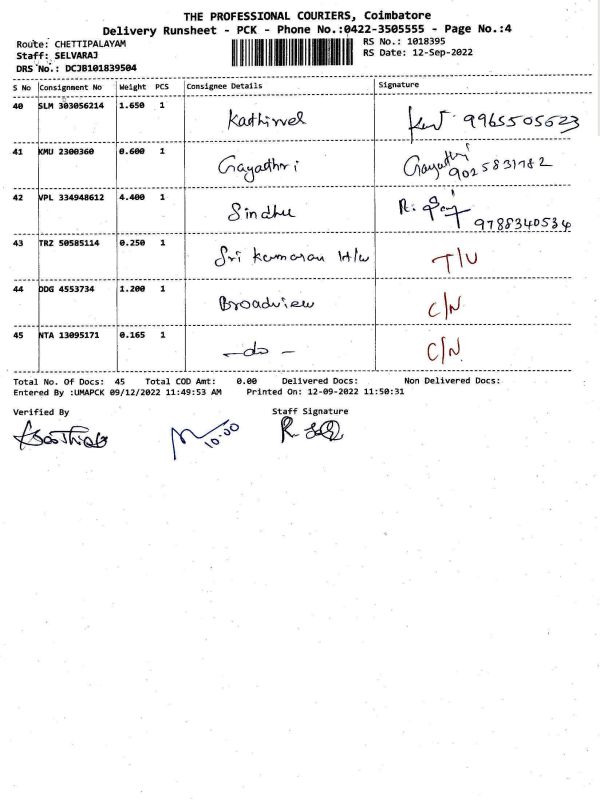 THE PROFESSIONAL COURIERS, Coimbatore
Delivery Runsheet - PCK - Phone No.:0422-3505555 - Page No.:4
Route: CHETTIPALAYAM RS No.: 1018395
Staff: SELVARAJ RS Date: 12-Sep-2022
DRS No.: DCJB101839504
S No Consignment No Weight PCS Consignee Details Signature
40 SLM 303056214 1.650 1 Kathirvel 9965505623
41 KMU 2300360 0.600 1 Gayathri Gayathri 9025831782
42 VPL 334948612 4.400 1 Sindhu 9788340534
43 TRZ 50585114 0.250 1 Sri Kumaran H/w T/U
44 DDG 4553734 1.200 1 Broadview C/N
45 NTA 13095171 0.165 1 -do- C/N
Total No. Of Docs: 45 Total COD Amt: 0.00 Delivered Docs: Non Delivered Docs:
Entered By :UMAPCK 09/12/2022 11:49:53 AM Printed On: 12-09-2022 11:50:31
Verified By Staff Signature
10:00